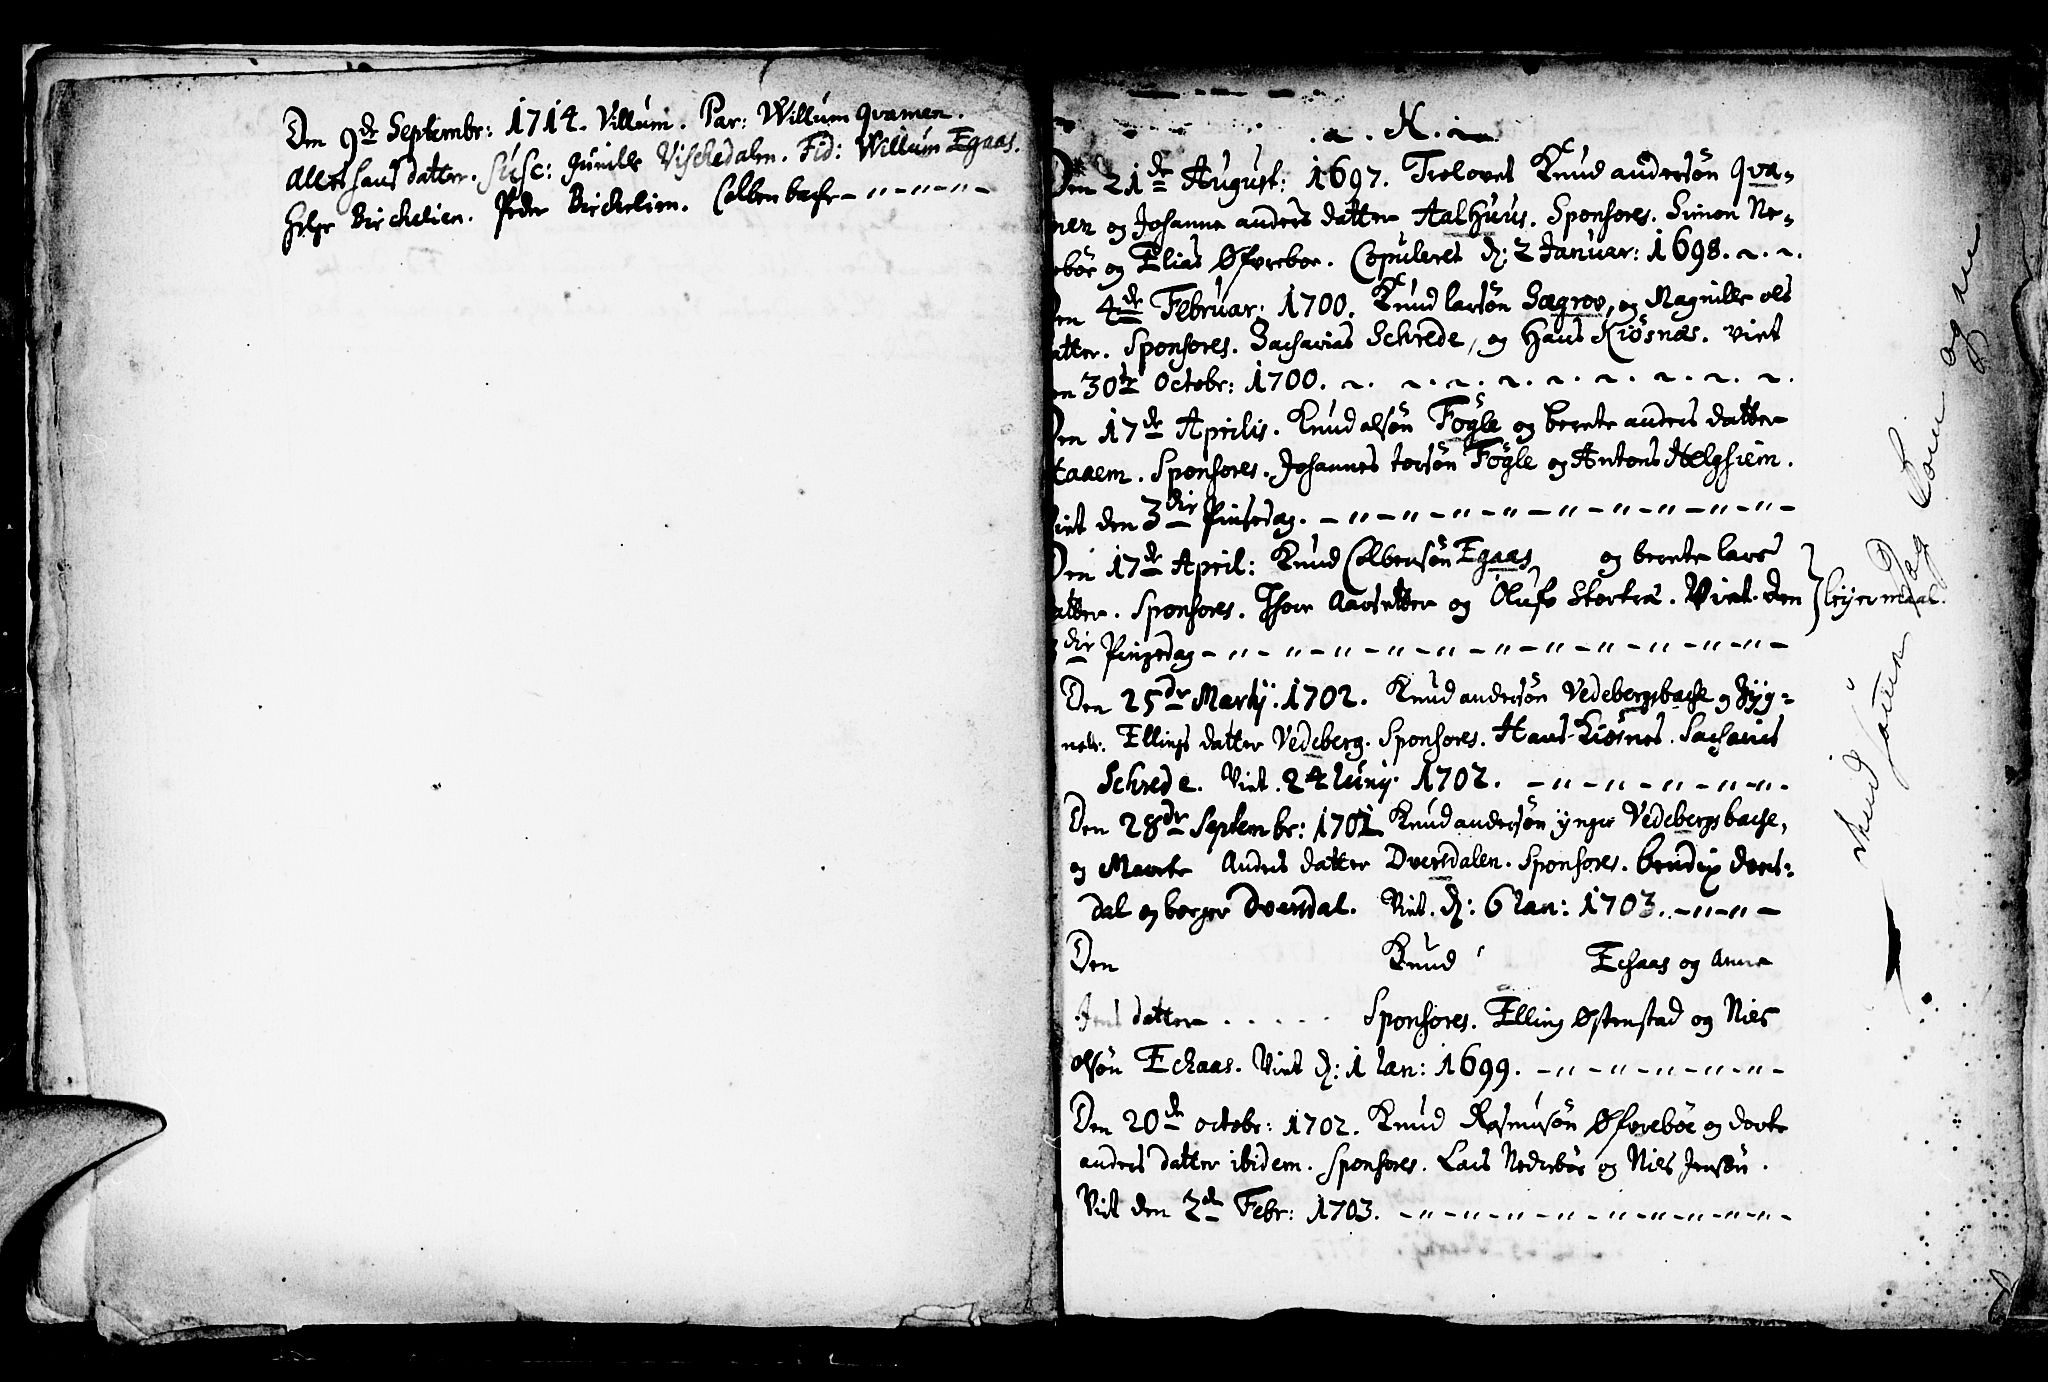 Den 9de Septembr: 1714. Villum. Par: Willum Qvamen.
Alletshans datter. Susc: Gunille Vischedalen. Fid: Willum Egaas.
Helge Birchelien. Peder Birchelien. Colben bache
K.
Den 21de August: 1697. Trolovet Knud andersön Qva-
men og Johanne anders datter Aalhuus. Sponsores. Simon Ne-
bör og Elias Øfreboe. Copuleret d: 2 Januar: 1698.
en 4de Februar: 1700. Knud larsön Sægrov, og Magnille ols
atter. Sponsores. Sacharias Schrede, og Hans Kiösnæs. Viet
en 30te Octobr: 1700.
Den 17de Aprilis. Knud olsön Fögle og berete anders datter
taaem. Sponsores. Johannes torsön Fögle og Antons Helgsiem.
iet den 3die Pinsedag.
Den 17de April: Knud Colbensön Egaas og berete lars
atter. Sponsores. Thor Aarsetter og Oluf Stortræ. Viet den
die Pingsdag
leyermaal.
Den 25de Martij. 1702. Knud andersön Vedebergsbache og Syg-
nele. Ellings datter Vedeberg. Sponsores. Hans Kiösnes. Sacharis
Schrede. Viet. 24 Iunij. 1702.
Den 28de Septembr: 1702 Knud andersön ynger Vedebergsbache,
og Marete Anders datter Dversdalen. Sponsores. bendix dvers-
dal og borger Dversdal. Viet. d: 6 Ian: 1703.
Den Knud Echaas og Anne
datter Sponsores. Elling Østenstad og Niels
olsön Echaas. Viet d: 1 Ian: 1699.
Den 20de octobr: 1702. Knud Rasmusön Øfreböe og dorte
anders datter ibidem. Sponsores. Lars Nedreböe og Niels Jensön.
Viet den 2de Febr: 1703.
Knud